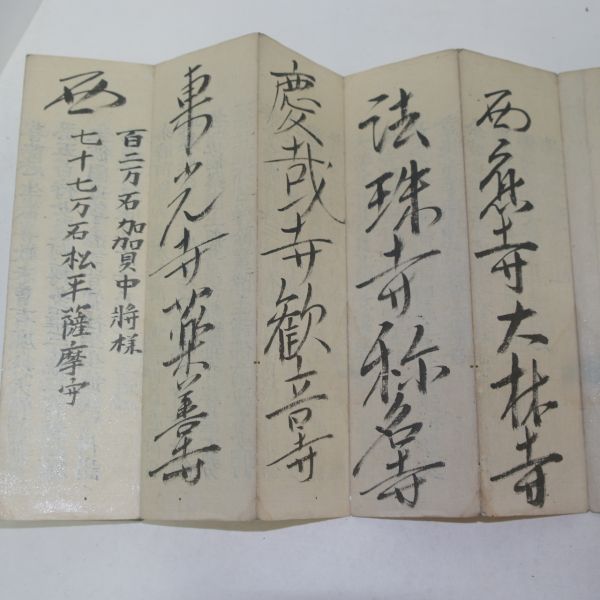 西應寺大林寺
法珠寺称名寺
慶哉寺歓音寺
東光寺薬善寺
西
百二万石加賀中将様
七十七万石松平薩摩守